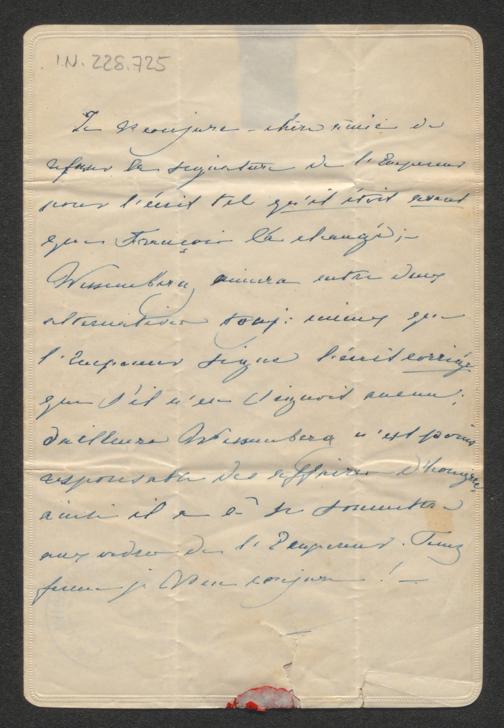 I.N. 228.725
Je vs conjure chère amie de
refuser la signature de l'Empereur
pour l'écrit tel qu'il étoit avant
que François l'a changé;–
Wessenberg aimera entre deux
alternatives touj: mieux que
l'Empereur signe l'écrit corrigé
que s'il n'en signoit aucun;
d'ailleurs Wessenberg n'est point
responsable des affaires d'Hongrie,
ainsi il a à se soumettre
aux ordres de l'Empereur. Tenez
ferme je vous en conjure! –